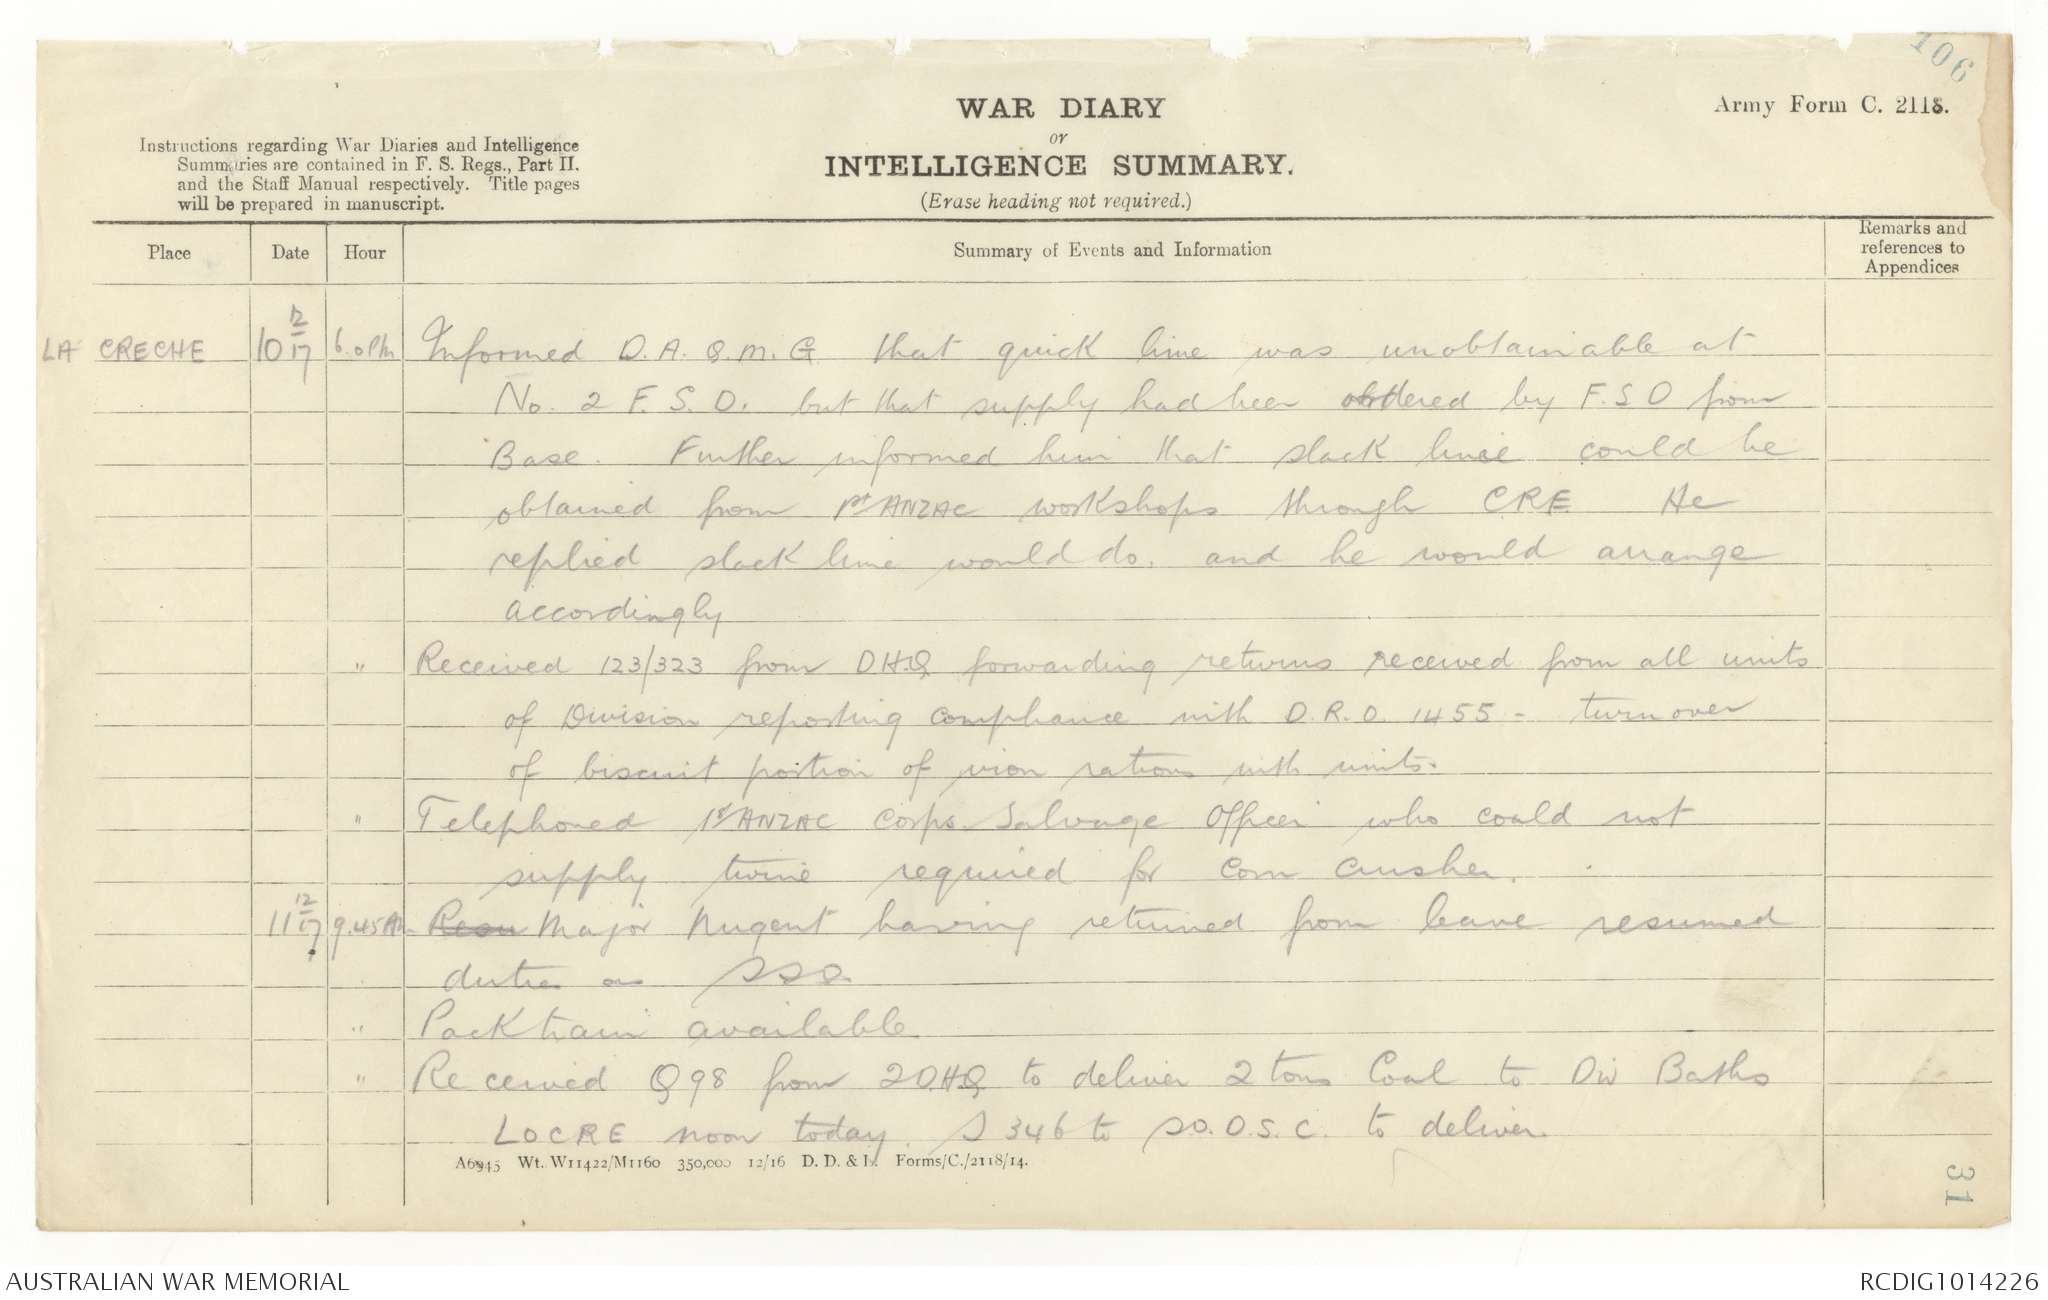 106
Army Form C. 2118.
WAR DIARY
or
INTELLIGENCE SUMMARY.
(Erase heading not required.)
Instructions regarding War Diaries and Intelligence
Summaries are contained in F. S. Regs., Part II.
and the Staff Manual respectively. Title pages
will be prepared in manuscript.
Place Date Hour Summary of Events and Information Remarks and references to Appendices
LA CRECHE 10 12/17 6.0 PM Informed D.A.Q.M.G that quick lime was unobtainable at
No. 2 F.S.D. but that supply had been ordered by F.S.D from
Base. Further informed him that slack lime could be
obtained from 1st ANZAC workshops through CRE He
replied slack lime would do. and he would arrange
accordingly
" Received 123/323 from D.H.Q forwarding returns received from all units
of Division reporting compliance with D.R.O. 1455 - turnover
of biscuit portion of iron rations with units.
" Telephoned 1st ANZAC Corps Salvage Officer who could not
supply twine required for corn crusher.
11 12/17 9.45 AM Major Nugent having returned from leave resumed
duties as SSO
" Pack train available
" Received Q98 from 2DHQ to deliver 2 tons Coal to Div Baths
LOCRE noon today. S346 to SO. D.S.C. to deliver.
A6945 Wt. W11422/M1160 350,000 12/16 D. D. & L. Forms/C./2118/14.
31
AUSTRALIAN WAR MEMORIAL
RCDIG1014226